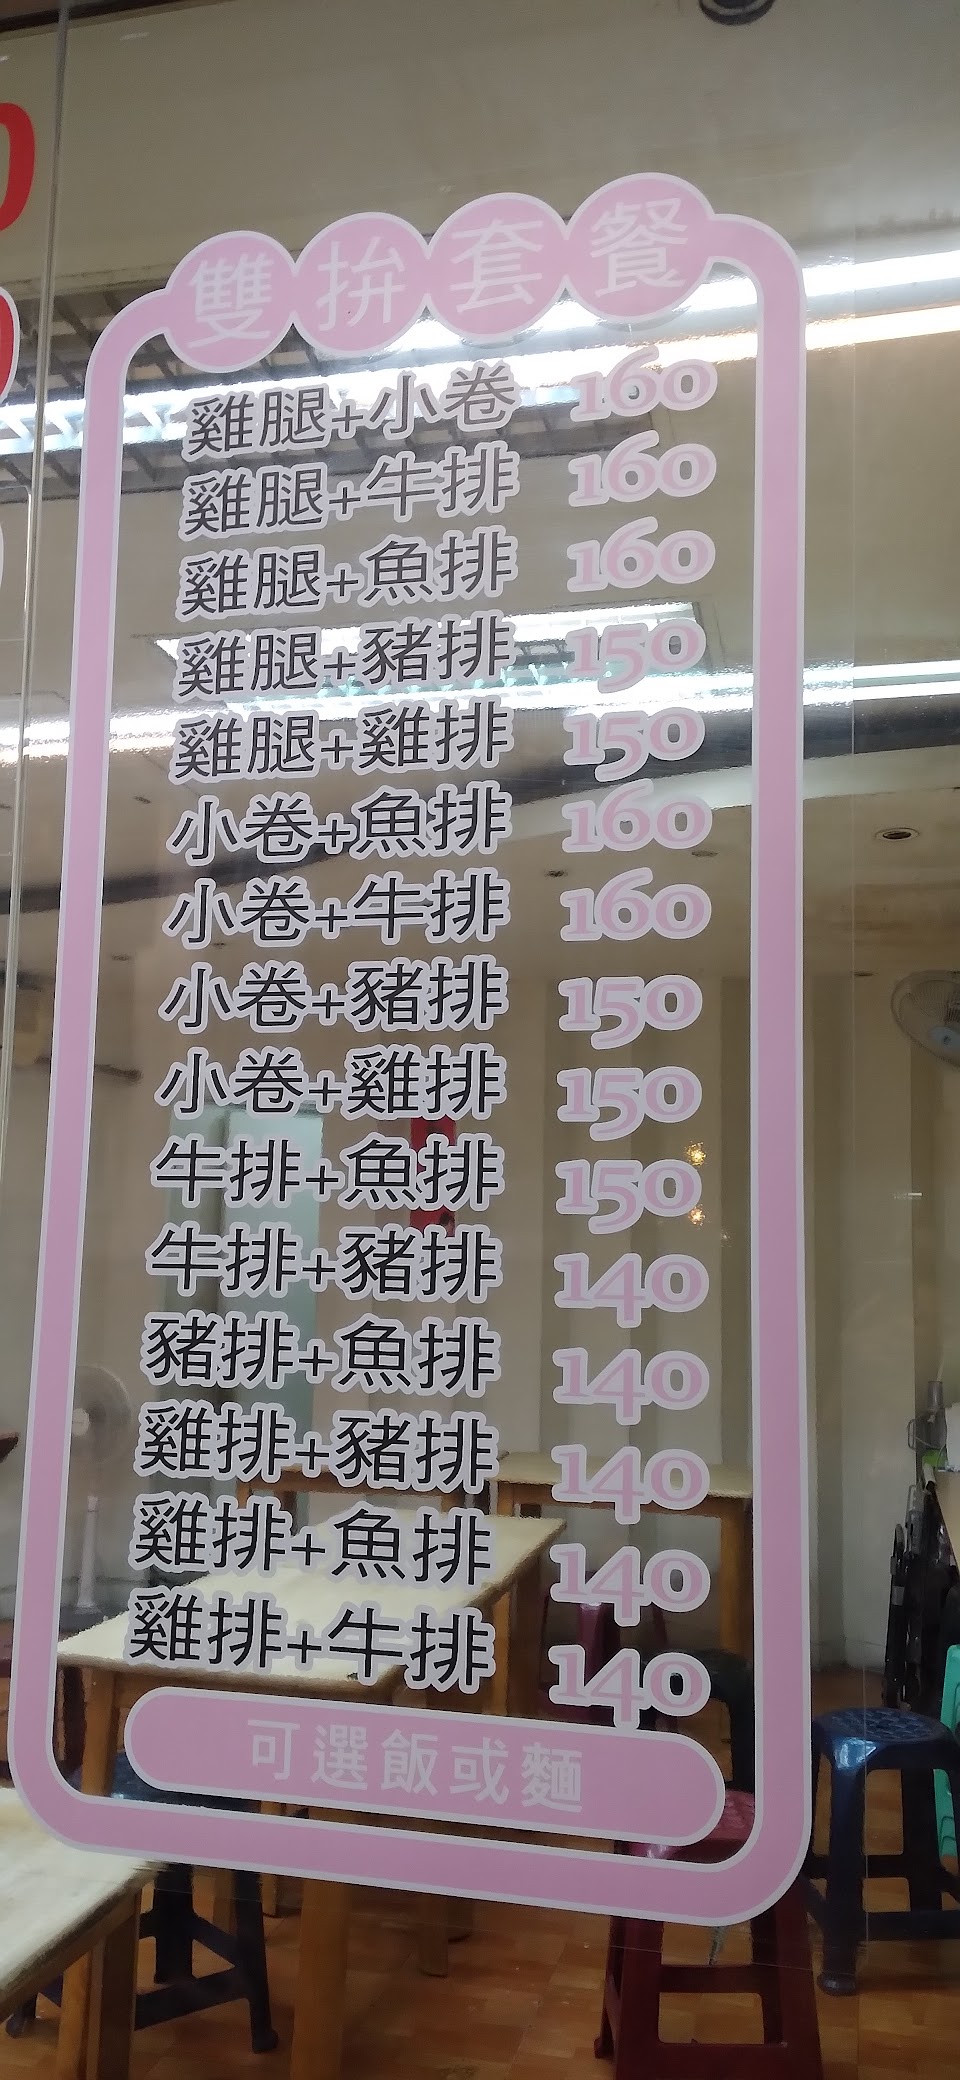 雙拚套餐
雞腿+小卷 160
雞腿+牛排 160
雞腿+魚排 160
雞腿+豬排 150
雞腿+雞排 150
小卷+魚排 160
小卷+牛排 160
小卷+豬排 150
小卷+雞排 150
牛排+魚排 150
牛排+豬排 140
豬排+魚排 140
雞排+豬排 140
雞排+魚排 140
雞排+牛排 140
可選飯或麵